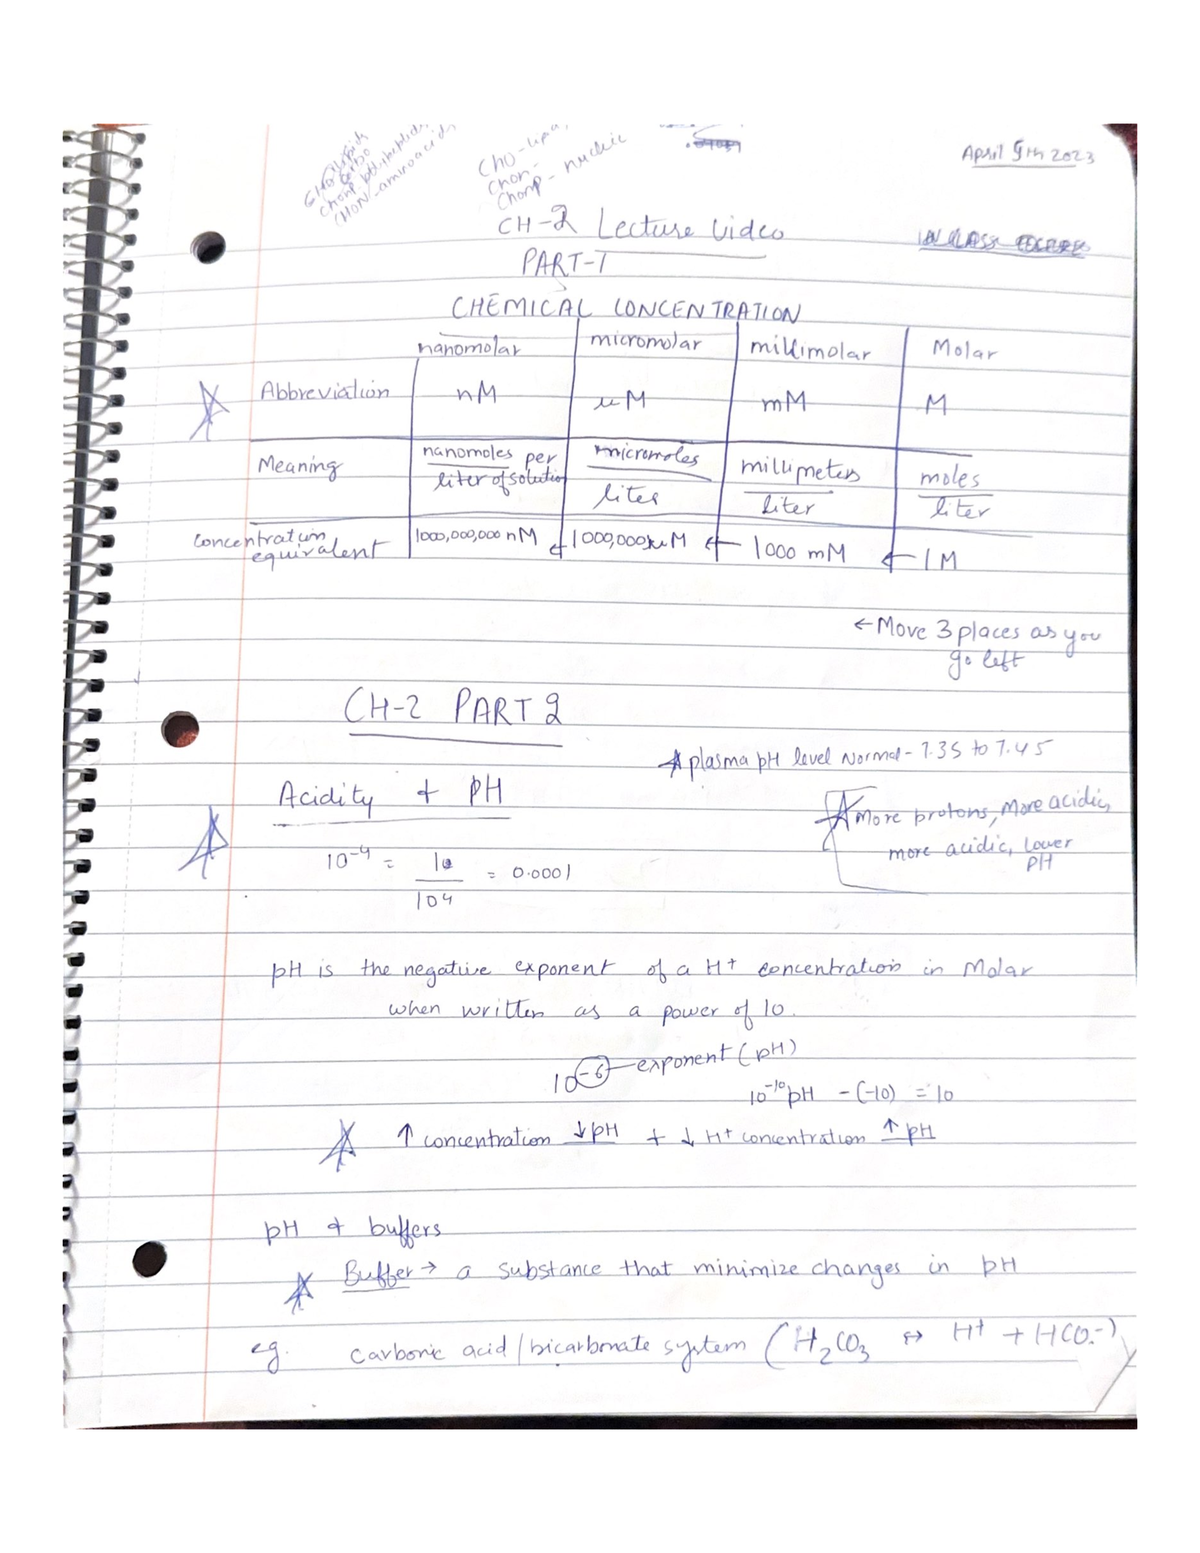 Cho-lip
Chon-
Chonp- nucleic
April 9th 2023
CH-2 Lecture Video
IN CLASS
PART-I
CHEMICAL CONCENTRATION
nanomolar micromolar millimolar Molar
Abbreviation nM µM mM M
Meaning nanomoles per liter of solution micromoles / liter millimeters / liter moles / liter
Concentration equivalent 1000,000,000 nM ← 1000,000 µM ← 1000 mM ← 1M
← Move 3 places as you
go left
CH-2 PART 2
plasma pH level Normal - 7.35 to 7.45
Acidity + PH
More protons, More acidic,
more acidic, lower
PH
10⁻⁴ = 10 / 104 = 0.0001
pH is the negative exponent of a H+ concentration in Molar
when written as a power of 10.
10⁻⁶ exponent (pH)
10⁻¹⁰ pH - (-10) = 10
↑ concentration ↓ pH + ↓ H+ concentration ↑ pH
pH + buffers
Buffer → a substance that minimize changes in pH
eg. Carbonic acid / bicarbonate system (H₂CO₃ ↔ H+ + HCO₃-)